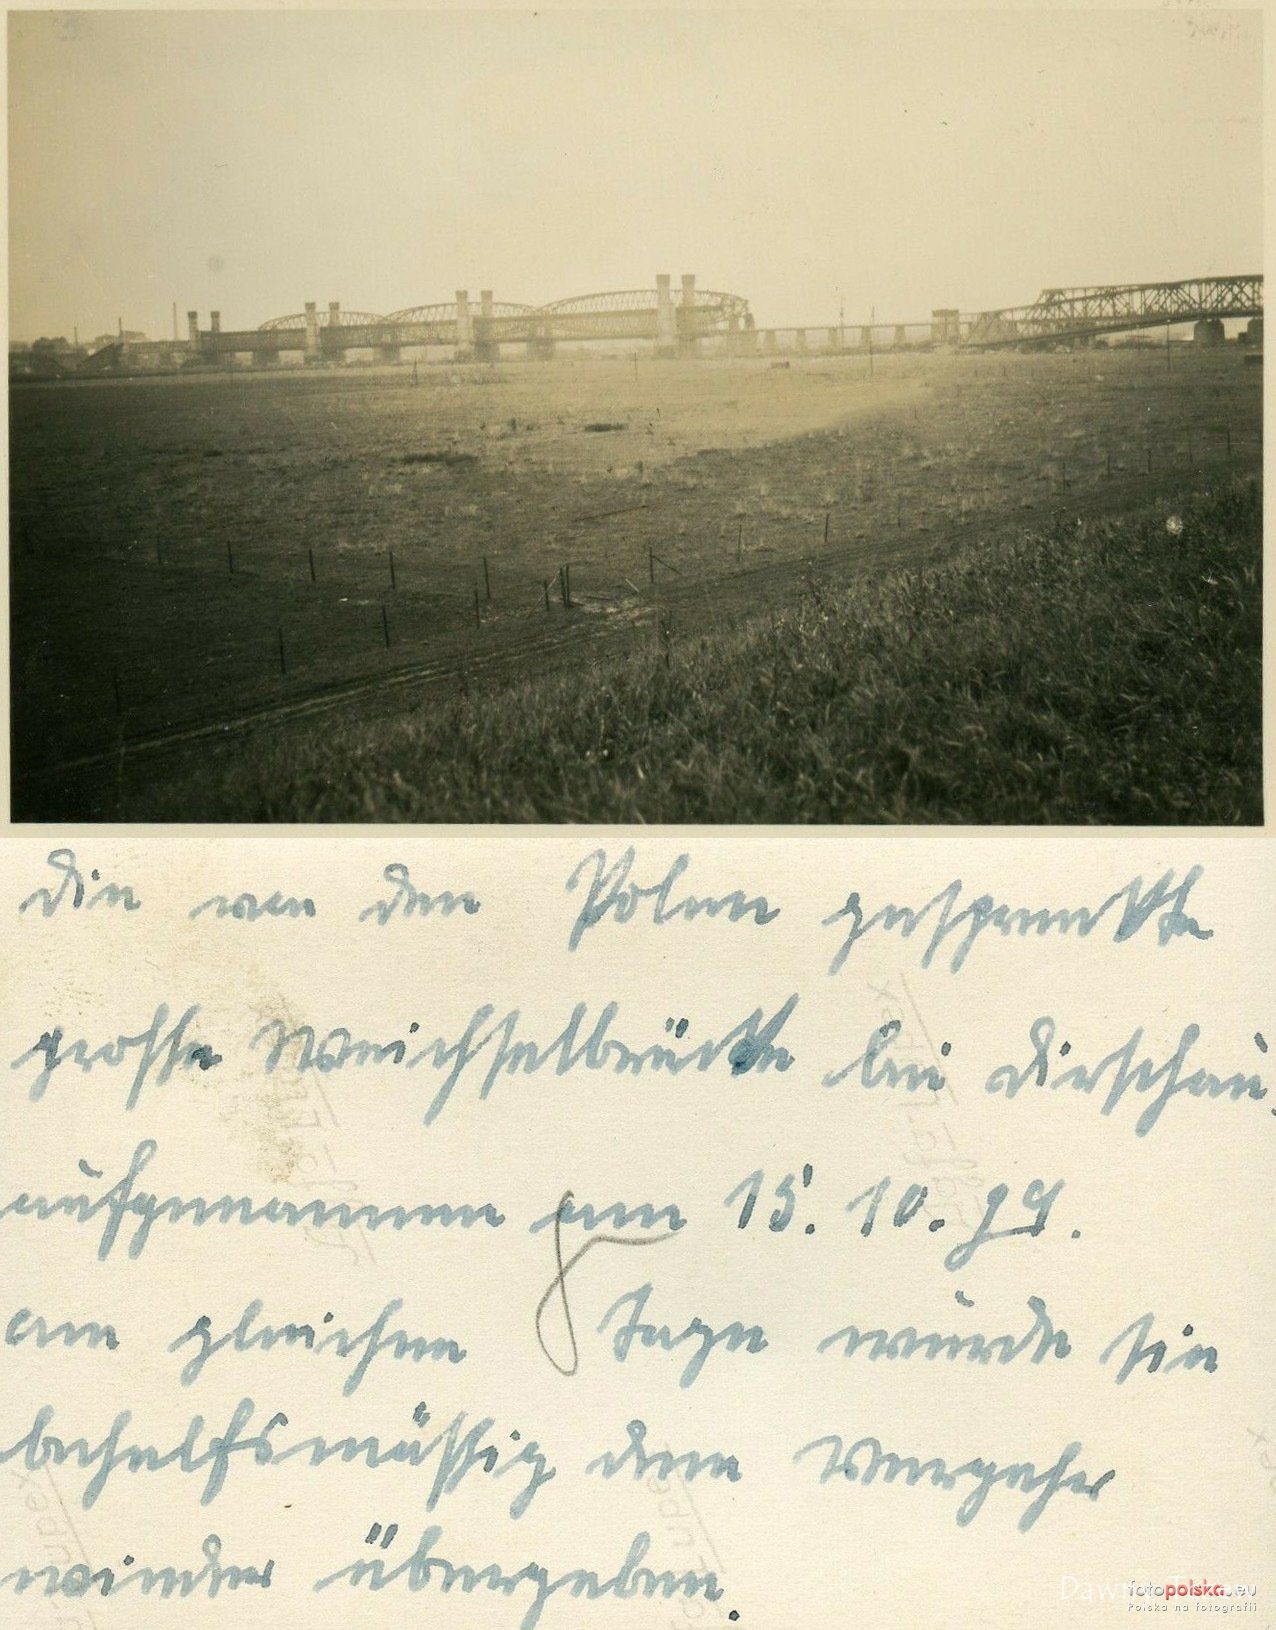 die von den Polen gesprenkte
grosse Weichselbrücke bei Dirschau.
aufgenommen am 15. 10. 39.
am gleichen Tage wurde sie
behelfsmässig dem Verkehr
wieder übergeben.
fotopolska.eu
Polska na fotografii